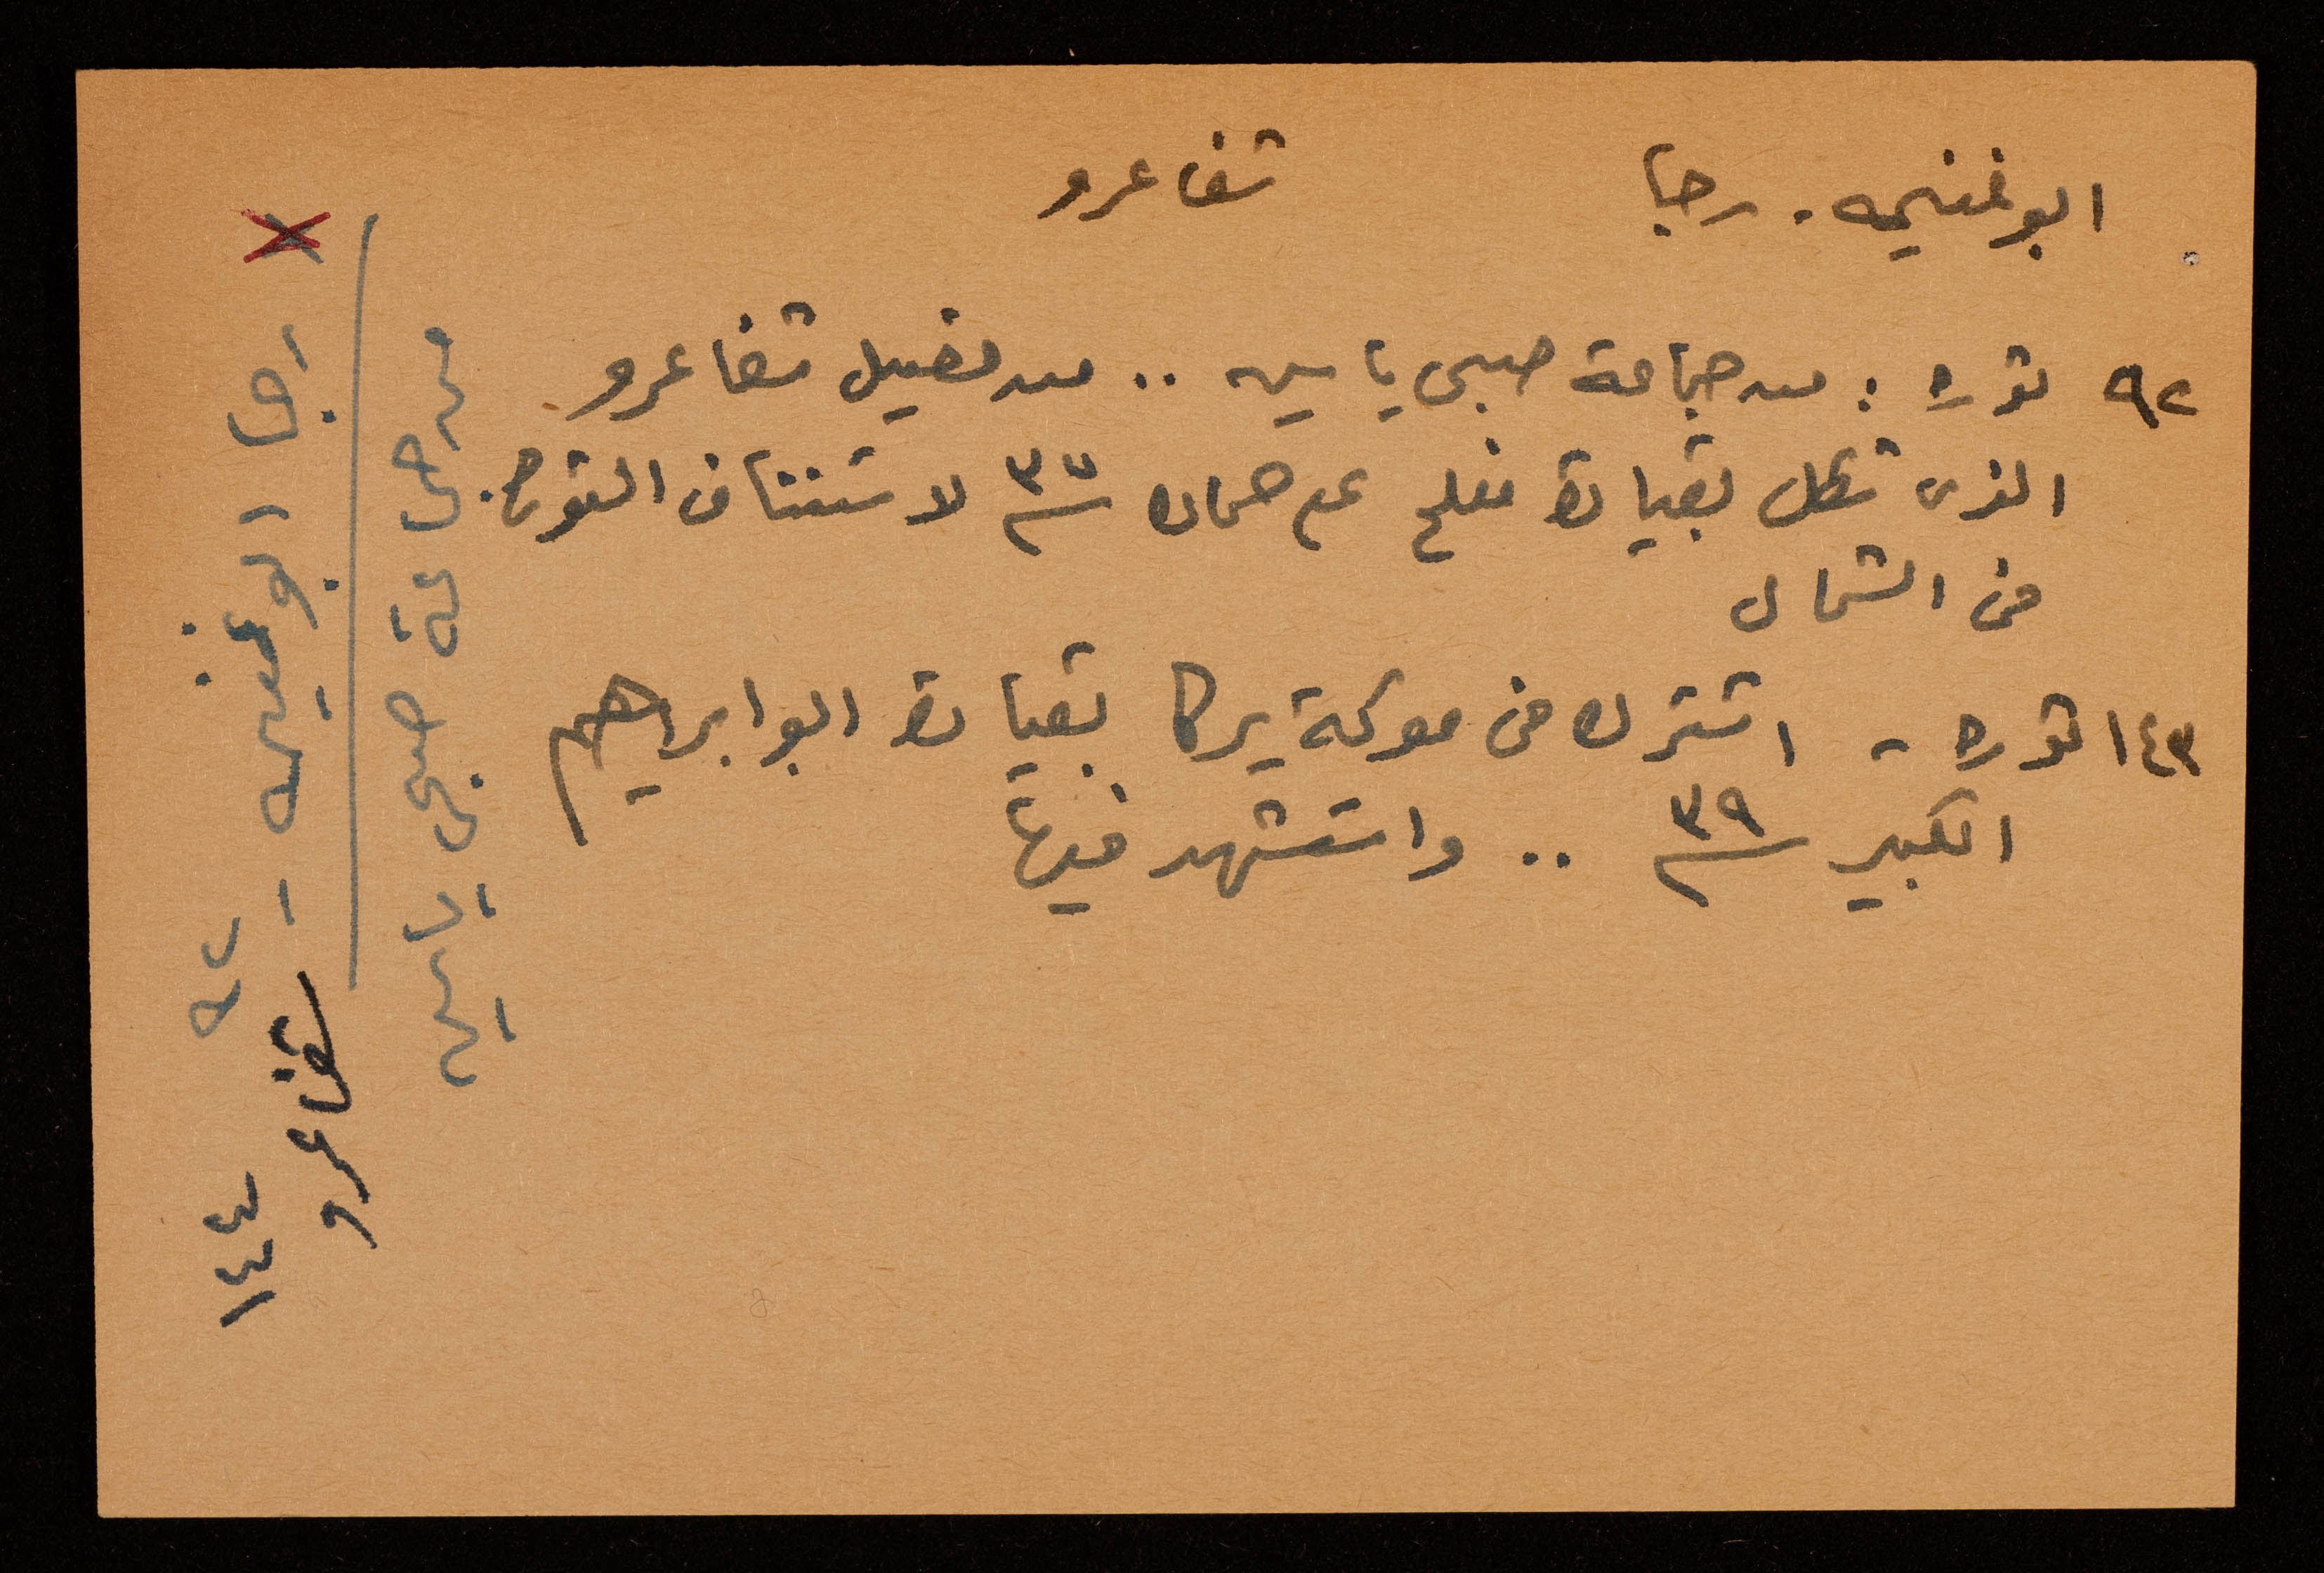 ابو غنيمه . رجا
شفا عمرو
٩٢ ثوره : من جماعة صبحي ياسين .. من فصيل شفا عمرو
الذي تشكل بقيادة مفلح علي حماده ٣٧ لاستئناف الثوره
في الشمال
١٤٣ ثوره - اشترك في معركة يركا بقيادة ابو ابراهيم
الكبير ٣٩ .. واستشهد فيها
رجا ابو غنيمه - ٩٢
شفا عمرو ١٤٤
من جماعة صبحي ياسين